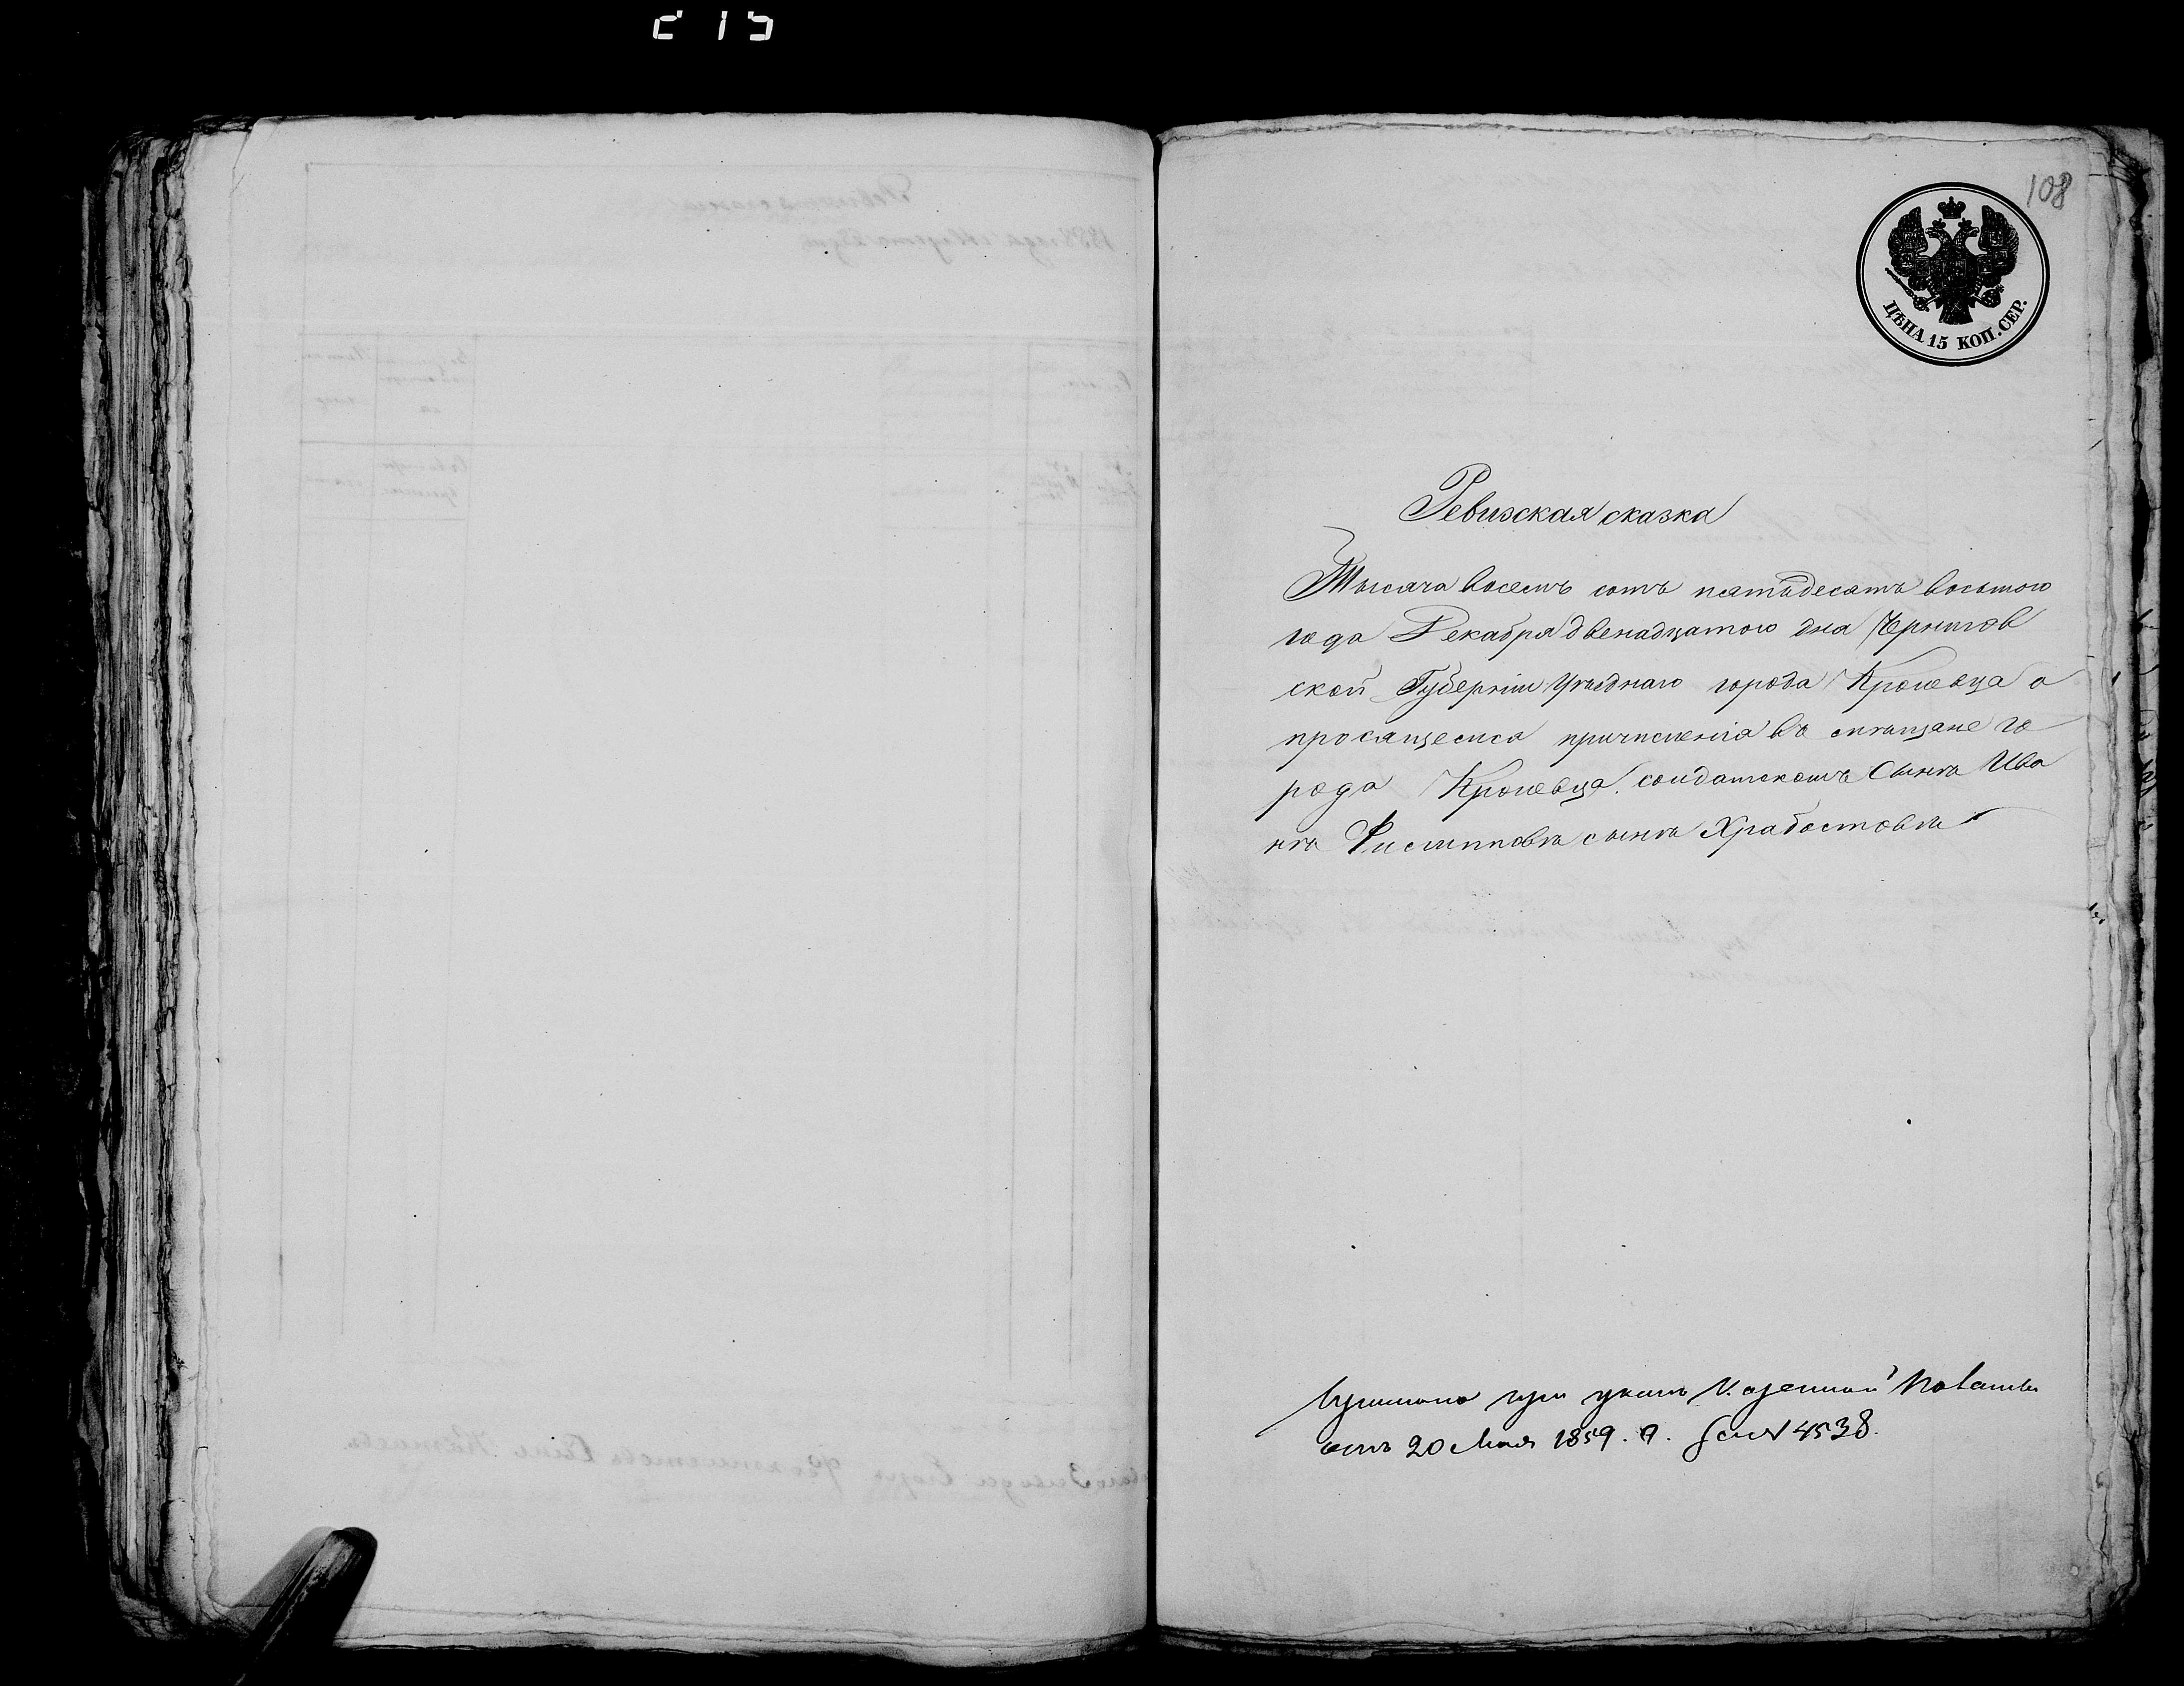 215
108
ЦѢНА 15 КОП. СЕР.
Ревизская сказка
Тысяча восемь сотъ пятьдесятъ восьмого
года Декабря двенадцатого дня Чернигов
ской Губерніи уѣзднаго города Кролевца о
просящемся причисленія въ мѣщане го
рода Кролевца солдатскомъ сынѣ Ива
нѣ Филипповѣ сынѣ Храбостовѣ
при указѣ Казенной Палаты
отъ 20 Мая 1859 г. за № 4538.